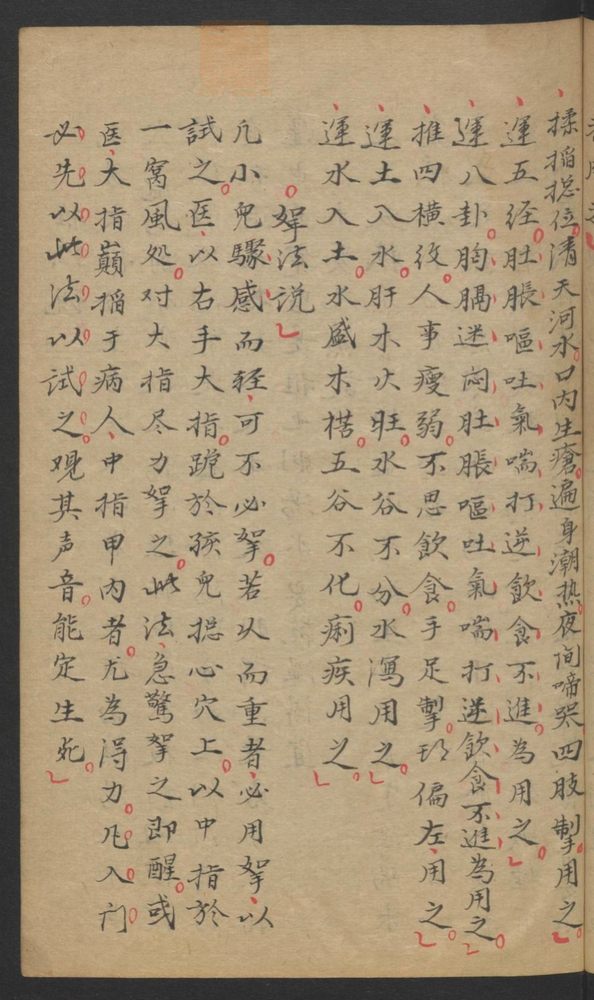 揉搯揔位清天河水口内生瘡遍身潮热夜间啼哭四肢掣用之
運五经肚脹嘔吐氣喘打逆飲食不進為用之
運八卦胸膈迷闷肚脹嘔吐氣喘打逆飲食不進為用之
推四横纹人事瘦弱不思飲食手足掣 偏左用之
運土入水肝木火旺水谷不分水瀉用之
運水入土水盛木楛五谷不化痢疾用之
拏法説
凡小兒驟感而轻可不必拏若以而重者必用拏以
試之医以右手大指跪於孩兒揔心穴上以中指於
一窩風処对大指尽力拏之此法急驚拏之即醒或
医大指巔搯于病人中指甲内者尤為得力凡入门
必先以此法以試之观其声音能定生死